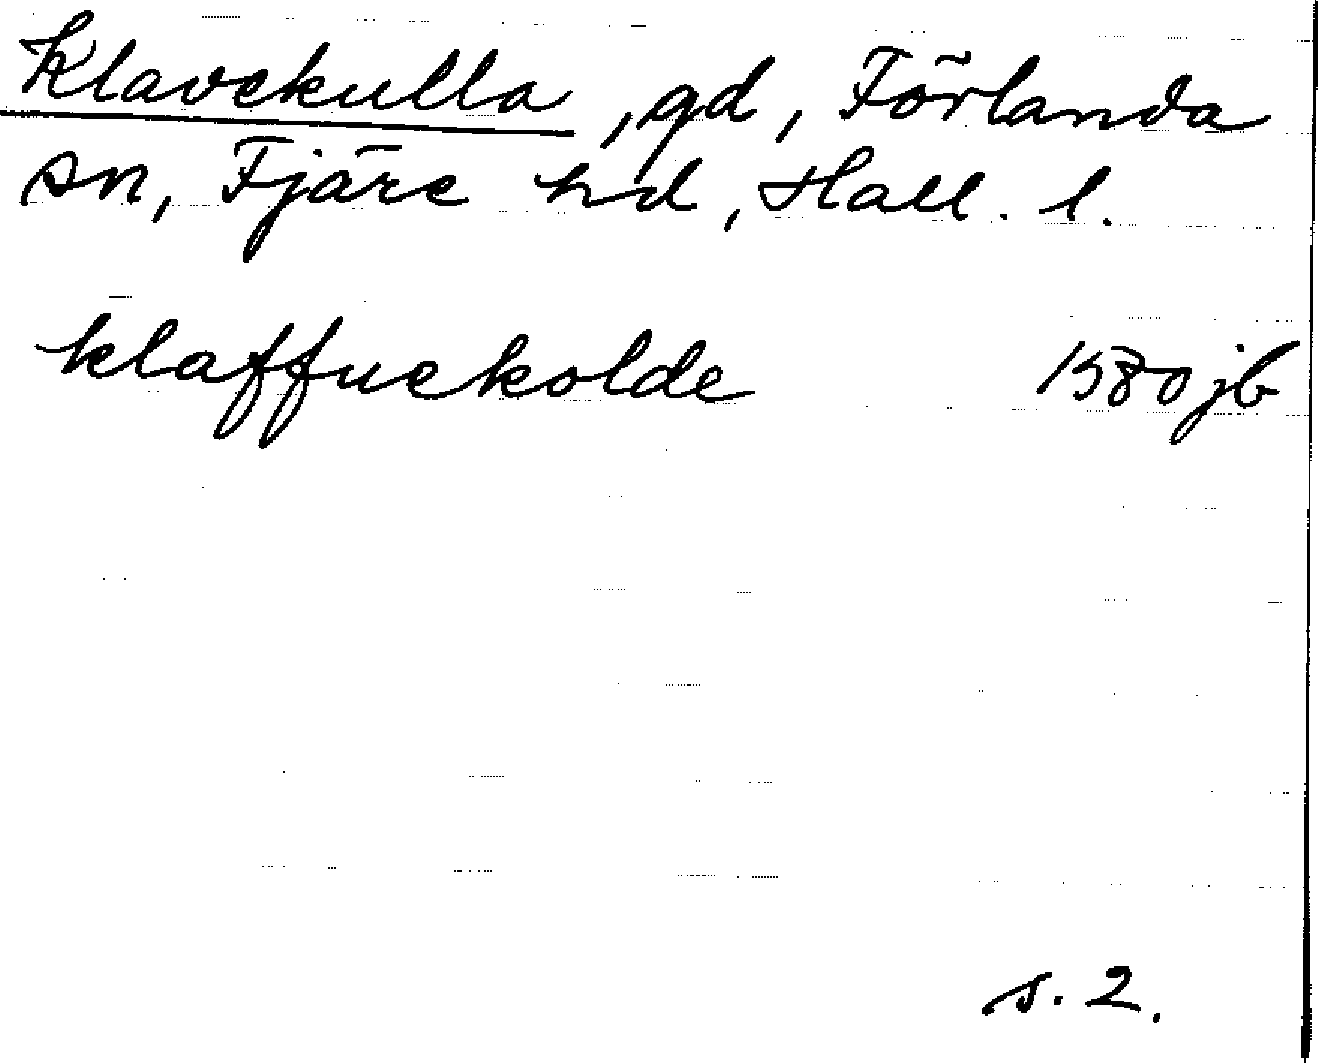 Klavekulla, gd, Förlanda
sn, Fjäre hd, Hall. l.
klaffuekolde 1580 jb
s. 2.